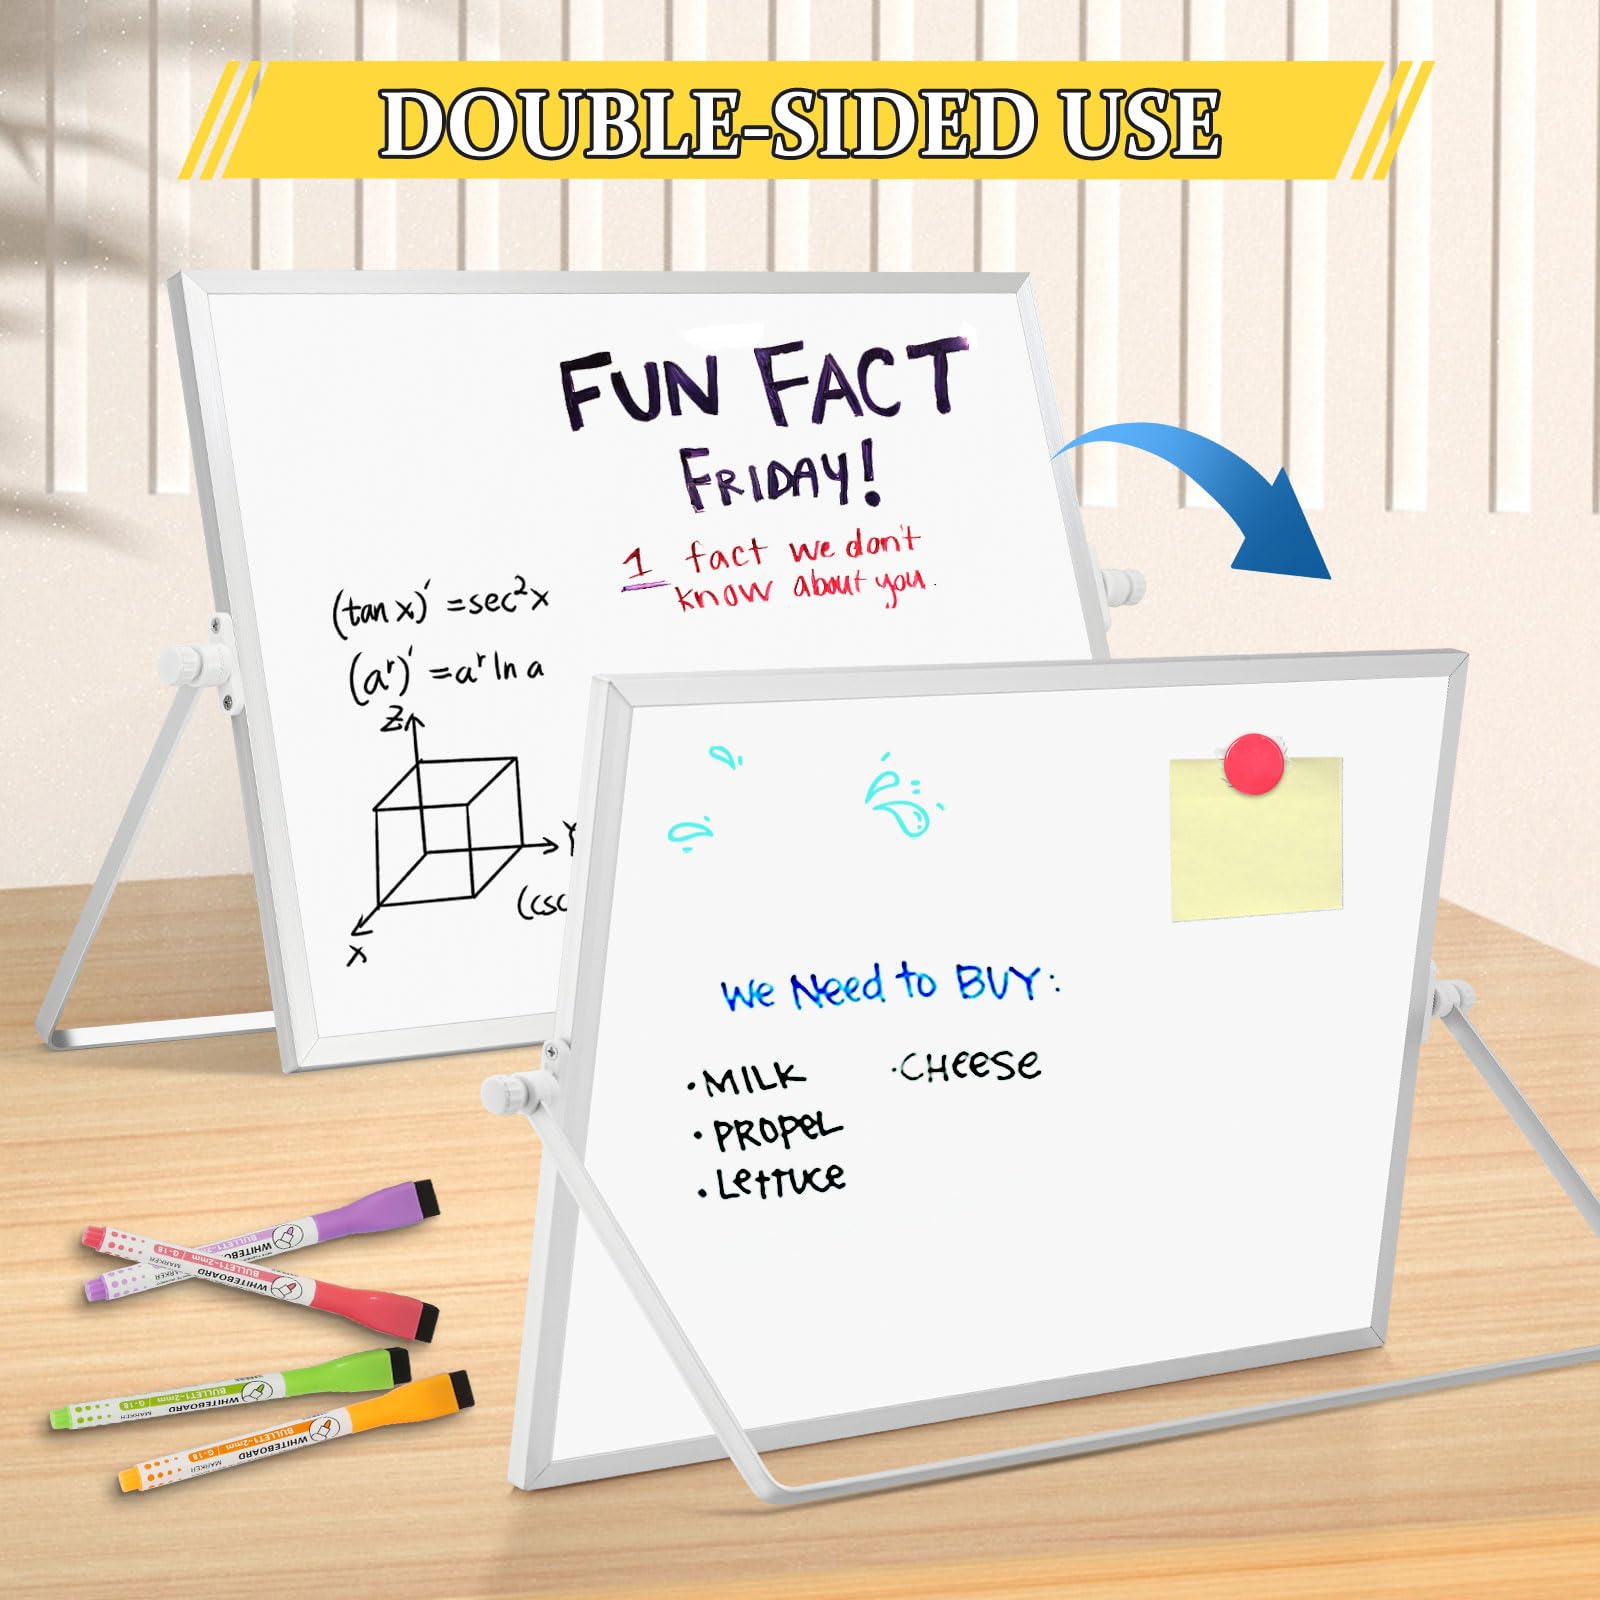 DOUBLE-SIDED USE
FUN FACT
FRIDAY!
1 fact we don't
know about you.
(tan x)' = sec²x
(aʳ)' = aʳ ln a
Z
Y
X
(csc
We Need to BUY:
• MILK
• PROPEL
• LETTUCE
• CHEESE
BULLET1-2mm
WHITEBOARD
MARKER
G-18 BULLET1-2mm
WHITEBOARD
MARKER
G-18 BULLET1-2mm
WHITEBOARD
MARKER
G-18 BULLET1-2mm
WHITEBOARD
MARKER